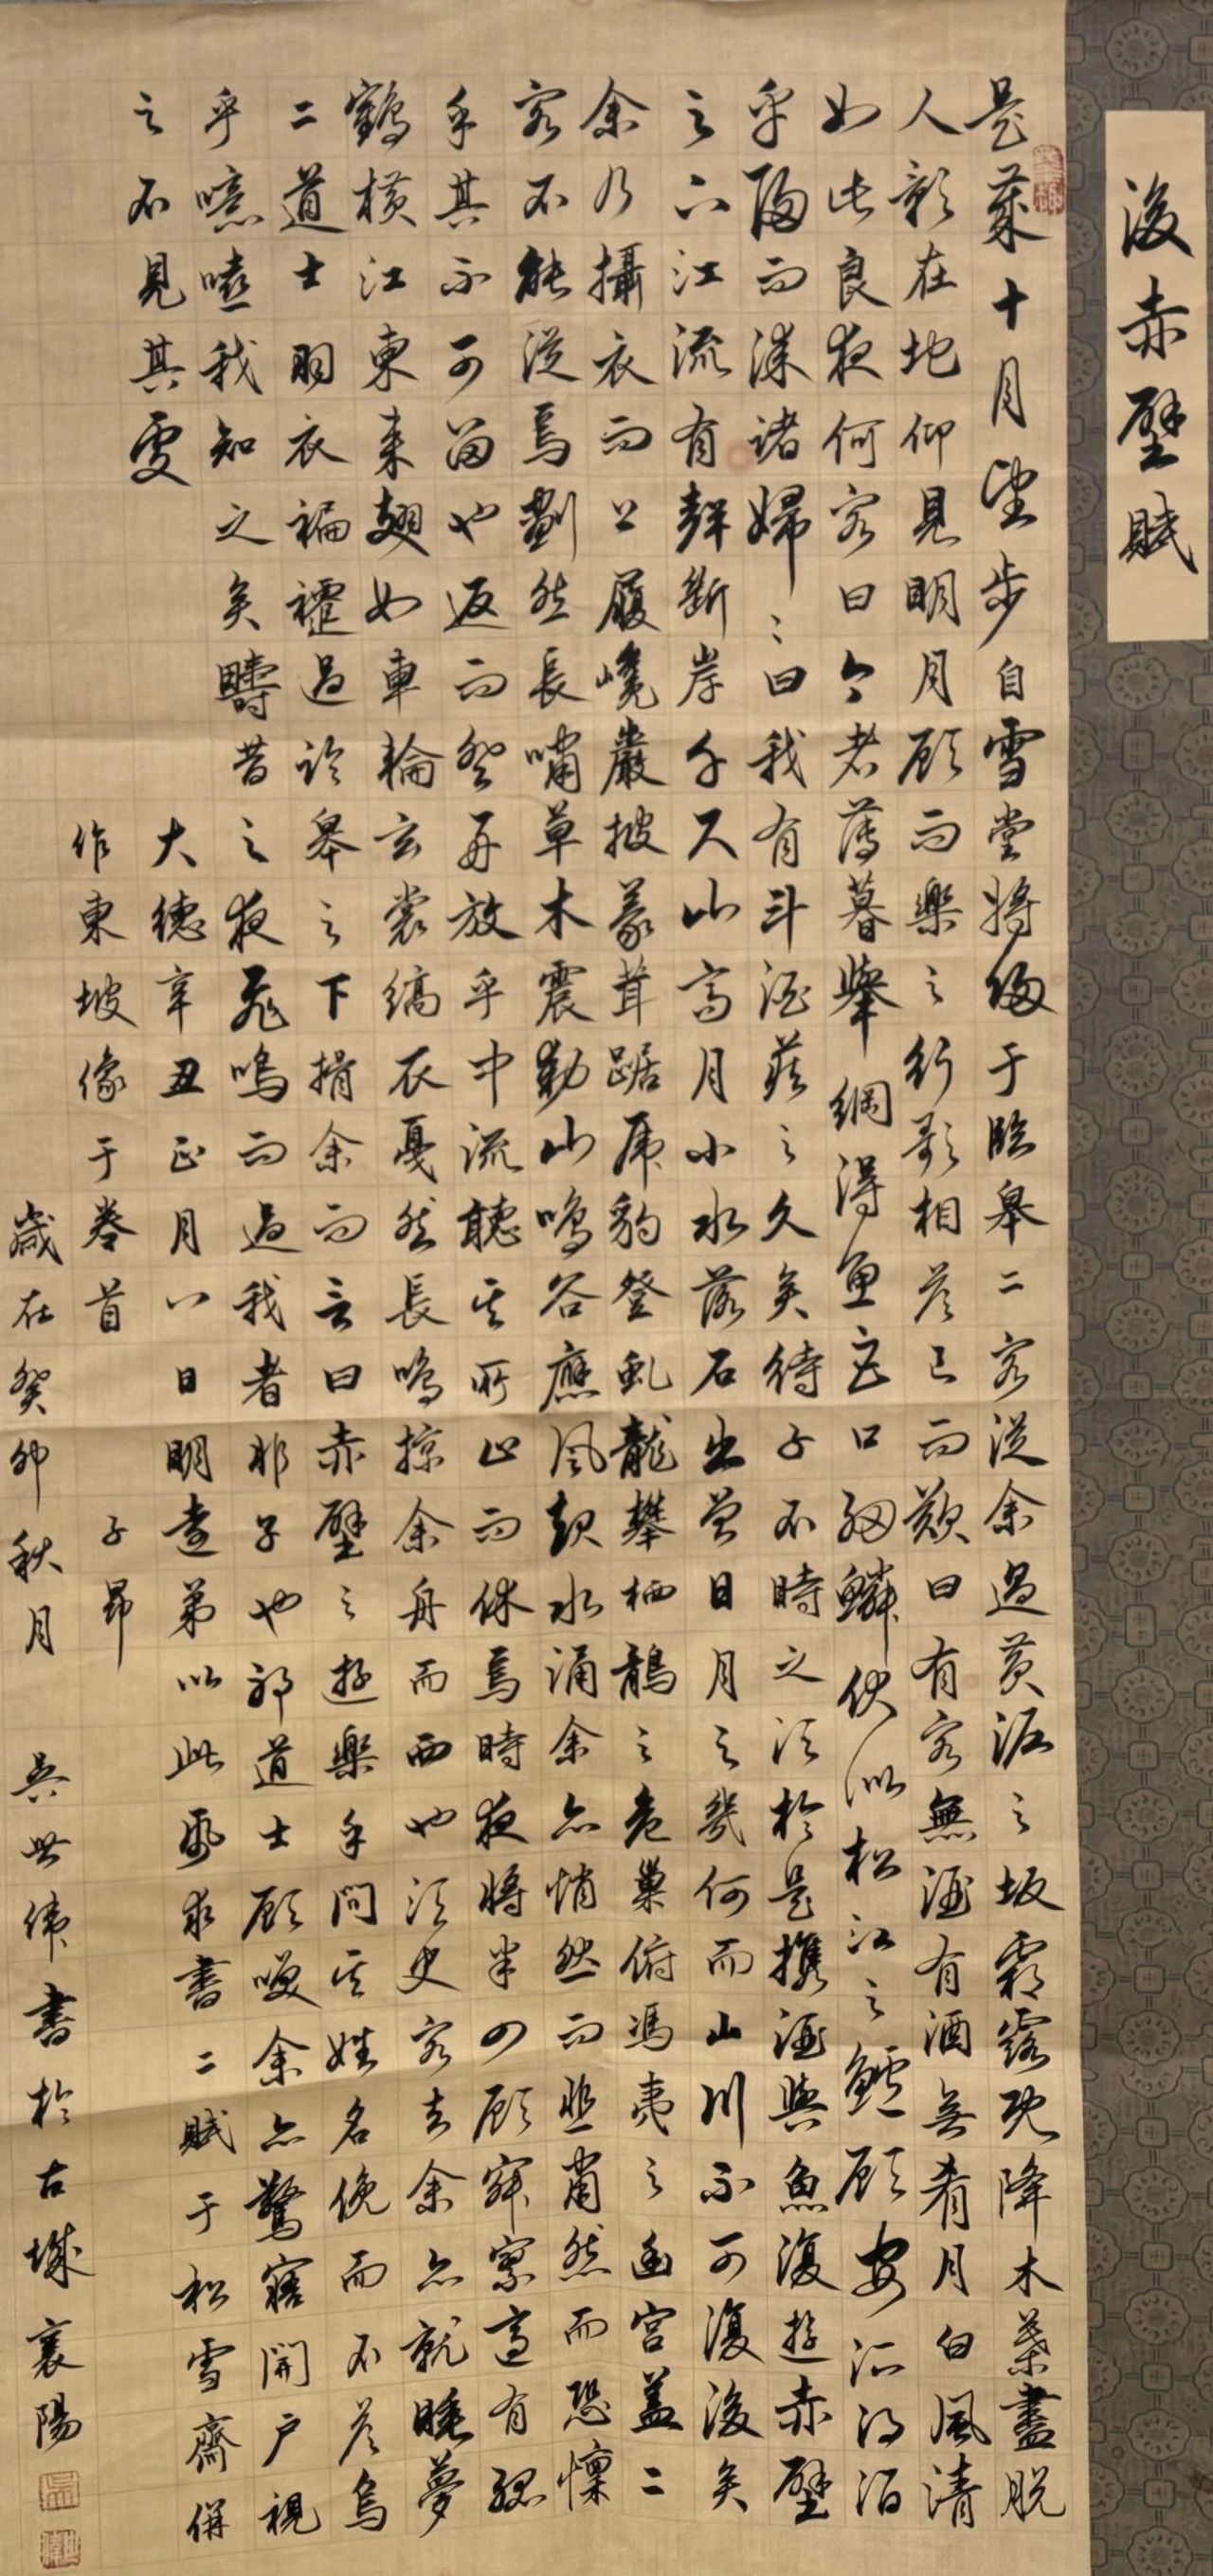 後赤壁賦
是歲十月望步自雪堂將歸于臨皋二客從余過黃泥之坂霜露既降木葉盡脫
人影在地仰見明月顧而樂之行歌相答已而歎曰有客無酒有酒無肴月白風清
如此良夜何客曰今者薄暮舉網得魚巨口細鱗狀似松江之鱸顧安所得酒
乎歸而謀諸婦〻曰我有斗酒藏之久矣待子不時之須於是攜酒與魚復遊赤壁
之下江流有聲斷岸千尺山高月小水落石出曾日月之幾何而山川不可復識矣
余乃攝衣而上履巉巖披蒙茸踞虎豹登虬龍攀栖鶻之危巢俯馮夷之幽宮蓋二
客不能從焉劃然長嘯草木震動山鳴谷應風起水涌余亦悄然而悲肅然而恐懍
乎其不可留也返而登舟放乎中流聽其所止而休焉時夜將半四顧寂寥適有孤
鶴橫江東來翅如車輪玄裳縞衣戛然長鳴掠余舟而西也須臾客去余亦就睡夢
二道士羽衣褊褼過臨皋之下揖余而言曰赤壁之遊樂乎問其姓名俛而不答烏
乎噫嘻我知之矣疇昔之夜飛鳴而過我者非子也耶道士顧笑余亦驚寤開戶視
之不見其處
大德辛丑正月八日明遠弟以此紙求書二賦于松雪齋併
作東坡像于卷首 子昂
歲在癸卯秋月 吳世偉書於古城襄陽